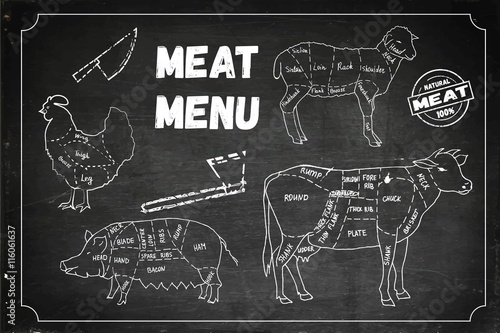 MEAT
MENU
NATURAL
MEAT
100%
Sirloin
Loin
Rack
Shoulder
Neck
Head
Flank
Breast
Wing
Thigh
Breast
Leg
HEAD
NECK
BLADE
HAND
CENTER
LOIN
RIBS
PRIME
SPARE RIBS
BACON
HAM
ROUND
RUMP
SIRLOIN
FORE
RIB
CHUCK
NECK
THICK FLANK
THIN FLANK
THICK RIB
THIN RIBS
PLATE
BRISKET
SHANK
UDDER
SHANK
116061637